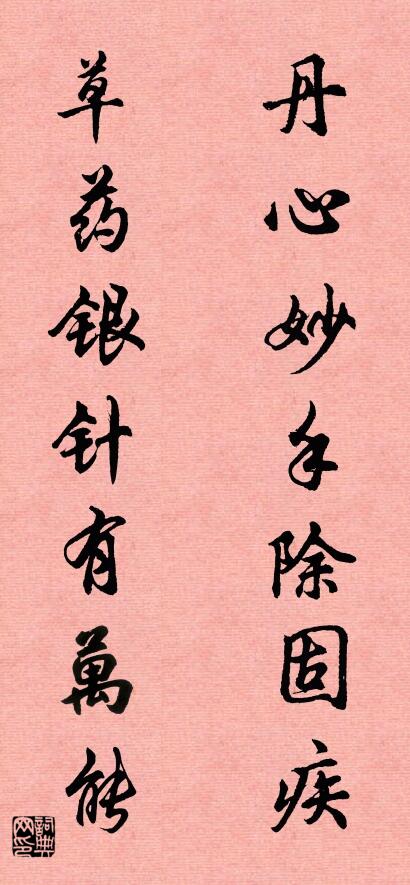 丹心妙手除固疾
草药银针有萬能
詞典网印